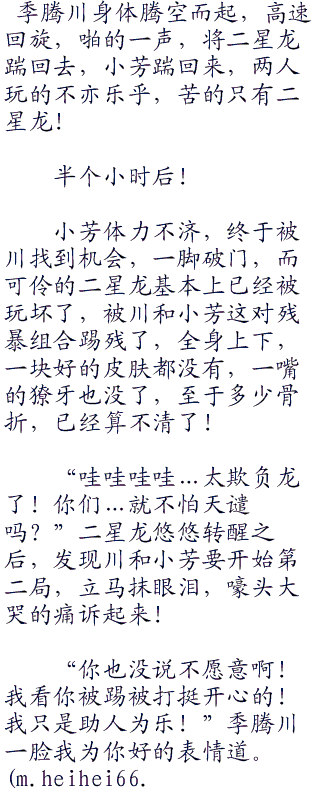 季腾川身体腾空而起，高速
回旋，啪的一声，将二星龙
踹回去，小芳踹回来，两人
玩的不亦乐乎，苦的只有二
星龙！
半个小时后！
小芳体力不济，终于被
川找到机会，一脚破门，而
可伶的二星龙基本上已经被
玩坏了，被川和小芳这对残
暴组合踢残了，全身上下，
一块好的皮肤都没有，一嘴
的獠牙也没了，至于多少骨
折，已经算不清了！
“哇哇哇哇…太欺负龙
了！你们…就不怕天谴
吗？”二星龙悠悠转醒之
后，发现川和小芳要开始第
二局，立马抹眼泪，嚎头大
哭的痛诉起来！
“你也没说不愿意啊！
我看你被踢被打挺开心的！
我只是助人为乐！”季腾川
一脸我为你好的表情道。
(m.heihei66.